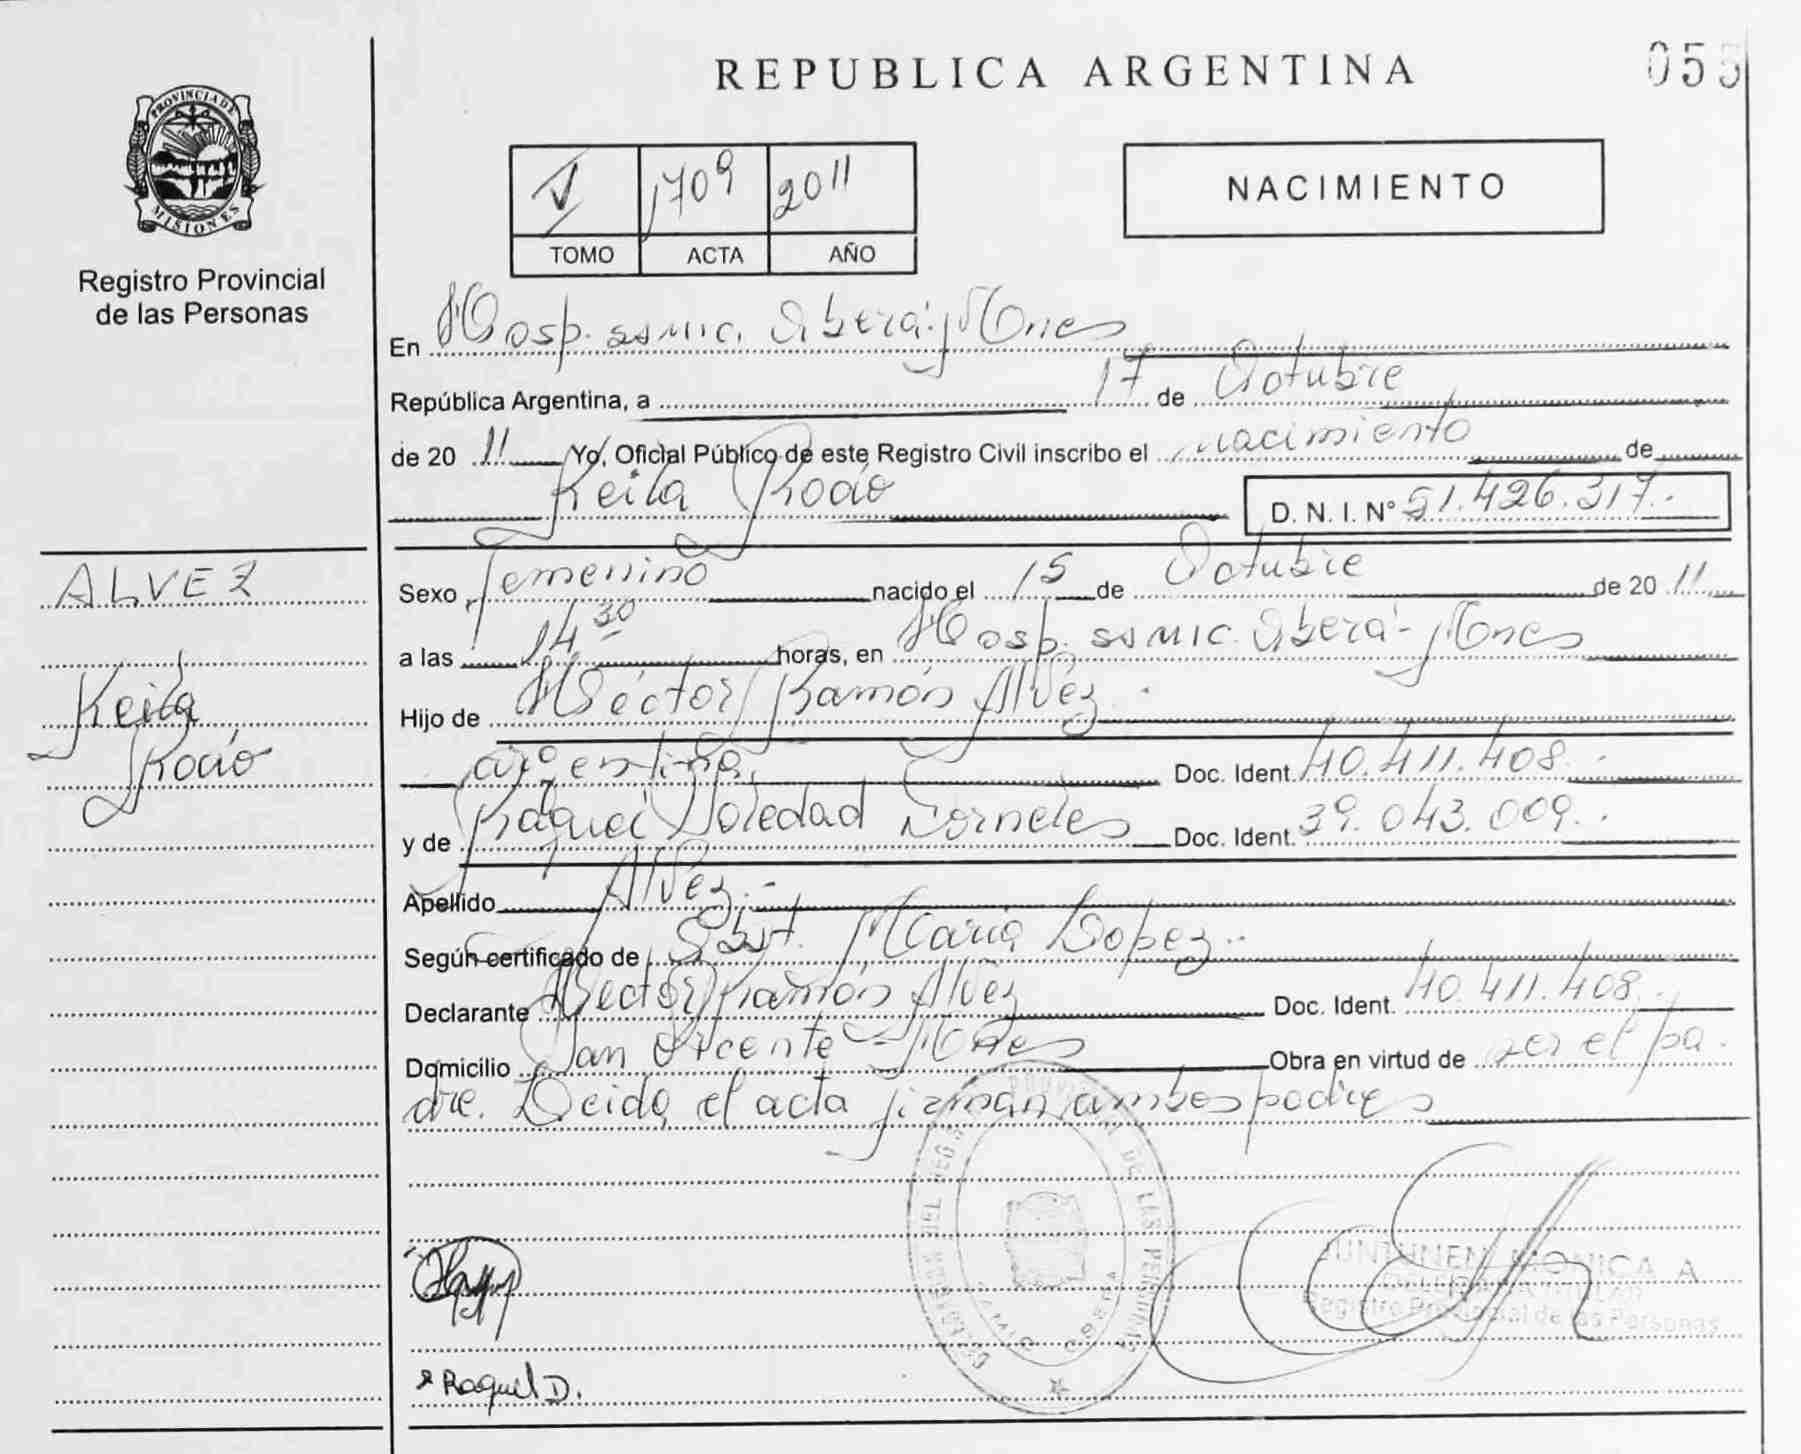 REPUBLICA ARGENTINA
055
PROVINCIA DE
MISIONES
Registro Provincial
de las Personas
V 1709 2011
TOMO ACTA AÑO
NACIMIENTO
En Hosp. SAMIC. Oberá-Mnes
República Argentina, a 17 de Octubre
de 2011 Yo, Oficial Público de este Registro Civil inscribo el nacimiento de
Keila Rocío D. N. I. Nº 51.426.317.-
ALVEZ
Keila
Rocío
Sexo femenino nacido el 15 de Octubre de 2011
a las 14 30 horas, en Hosp. SAMIC. Oberá-Mnes
Hijo de Héctor Ramón Alvez.
argentina, Doc. Ident. 40.411.408.-
y de Raquel Soledad Dorneles Doc. Ident. 39.043.009.-
Apellido Alvez.-
Según certificado de Obst. María Lopez.-
Declarante Héctor Ramón Alvez Doc. Ident. 40.411.408.-
Domicilio San Vicente - Mnes Obra en virtud de ser el pa-
dre. Leida el acta firman ambos padres
DEL REG. PROVINCIAL DE LAS PERSONAS
SAMIC OBERA
JUNTUNEN MONICA A
Registro Provincial de las Personas
Raquel D.